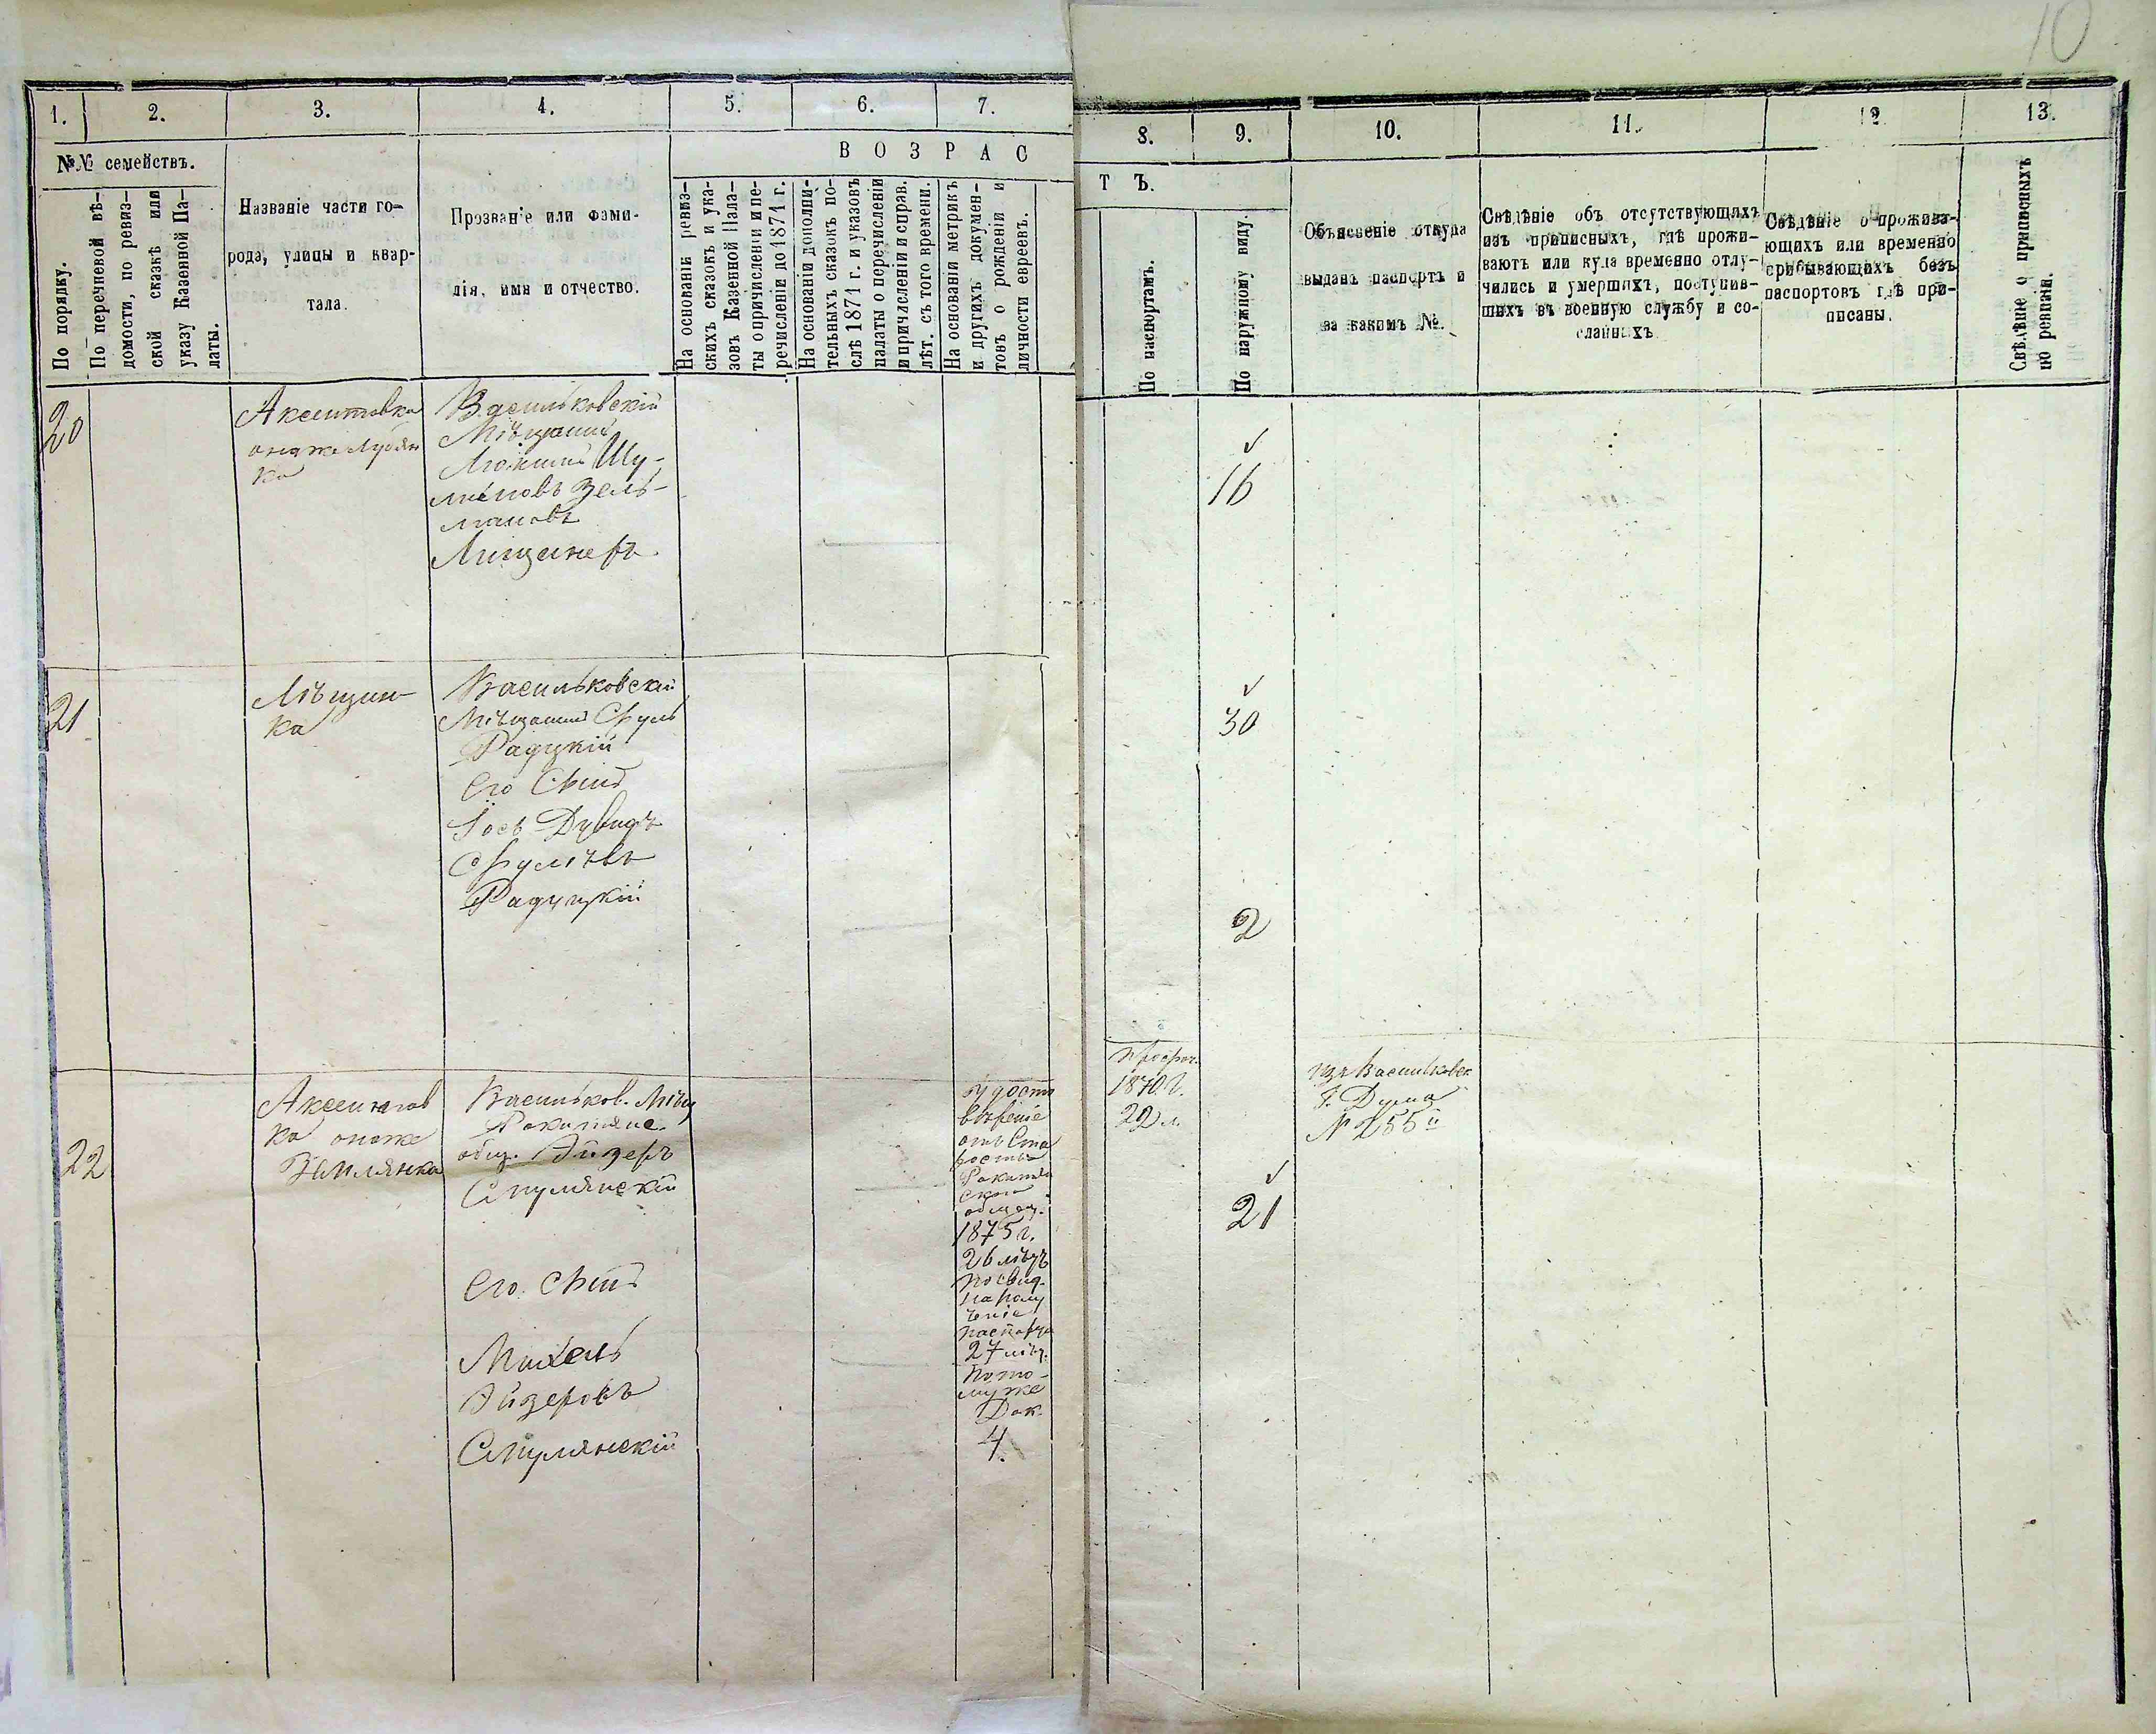 10
1.
2.
3.
4.
5.
6.
7.
8.
9.
10.
11.
12
13.
№№ семействъ.
По порядку.
По перечневой вѣ-
домости, по ревиз-
ской сказкѣ или
указу Казенной Па-
латы.
Названіе части го-
рода, улицы и квар-
тала.
Прозваніе или фами-
лія, имя и отчество.
ВОЗРАС
На основаніи ревиз-
скихъ сказокъ и ука-
зовъ Казенной Пала-
ты о причисленіи и пе-
речисленіи до 1871 г.
На основаніи дополни-
тельныхъ сказокъ по-
слѣ 1871 г. и указовъ
палаты о перечисленіи
и причисленіи и справ.
лѣт. съ того времени.
На основаніи метрикъ
и другихъ докумен-
товъ о рожденіи и
личности евреевъ.
ТЪ.
По паспортамъ.
По наружному виду.
Объясненіе откуда
выданъ паспортъ и
за какимъ №.
Свѣдѣніе объ отсутствующихъ
изъ приписныхъ, гдѣ прожи-
ваютъ или куда временно отлу-
чились и умершихъ, поступив-
шихъ въ военную службу и со-
сланныхъ
Свѣдѣніе о прожива-
ющихъ или временно
прибывающихъ безъ
паспортовъ гдѣ при-
писаны.
Свѣдѣніе о приписныхъ
по ревизіи.
20
онаже
ка
Васильковскій
Мѣщанинъ
Шу-
Зель-
мановъ
16
21
Мѣщан-
ка
Васильковскій
Мѣщанинъ Сруль
Радуцкій
Его Сынъ
Іось Дувидъ
Срулевъ
Радуцкій
30
2
22
ка онаже
Васильков. Мѣщ
Ракитянс.
общ. Эйзеръ
Спулянскій
Его Сынъ
Михель
Эйзеровъ
Спулянскій
Удосто
вѣреніе
отъ Ста
росты
Ракитян
скаго
общест.
1875 г.
26 лѣтъ
по свид.
на полу
ченіе
паспорта
27 лѣт.
по то-
муже
Док.
4.
1870 г.
22 л.
21
изъ Васильковск
Г. Дума
№ 255